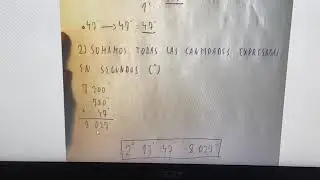 1'
• 47'' → 47'' = 47''
2) SUMAMOS TODAS LAS CANTIDADES EXPRESADAS
EN SEGUNDOS ('')
7 200''
780''
47''
8 027''
2° 13' 47'' = 8 027''